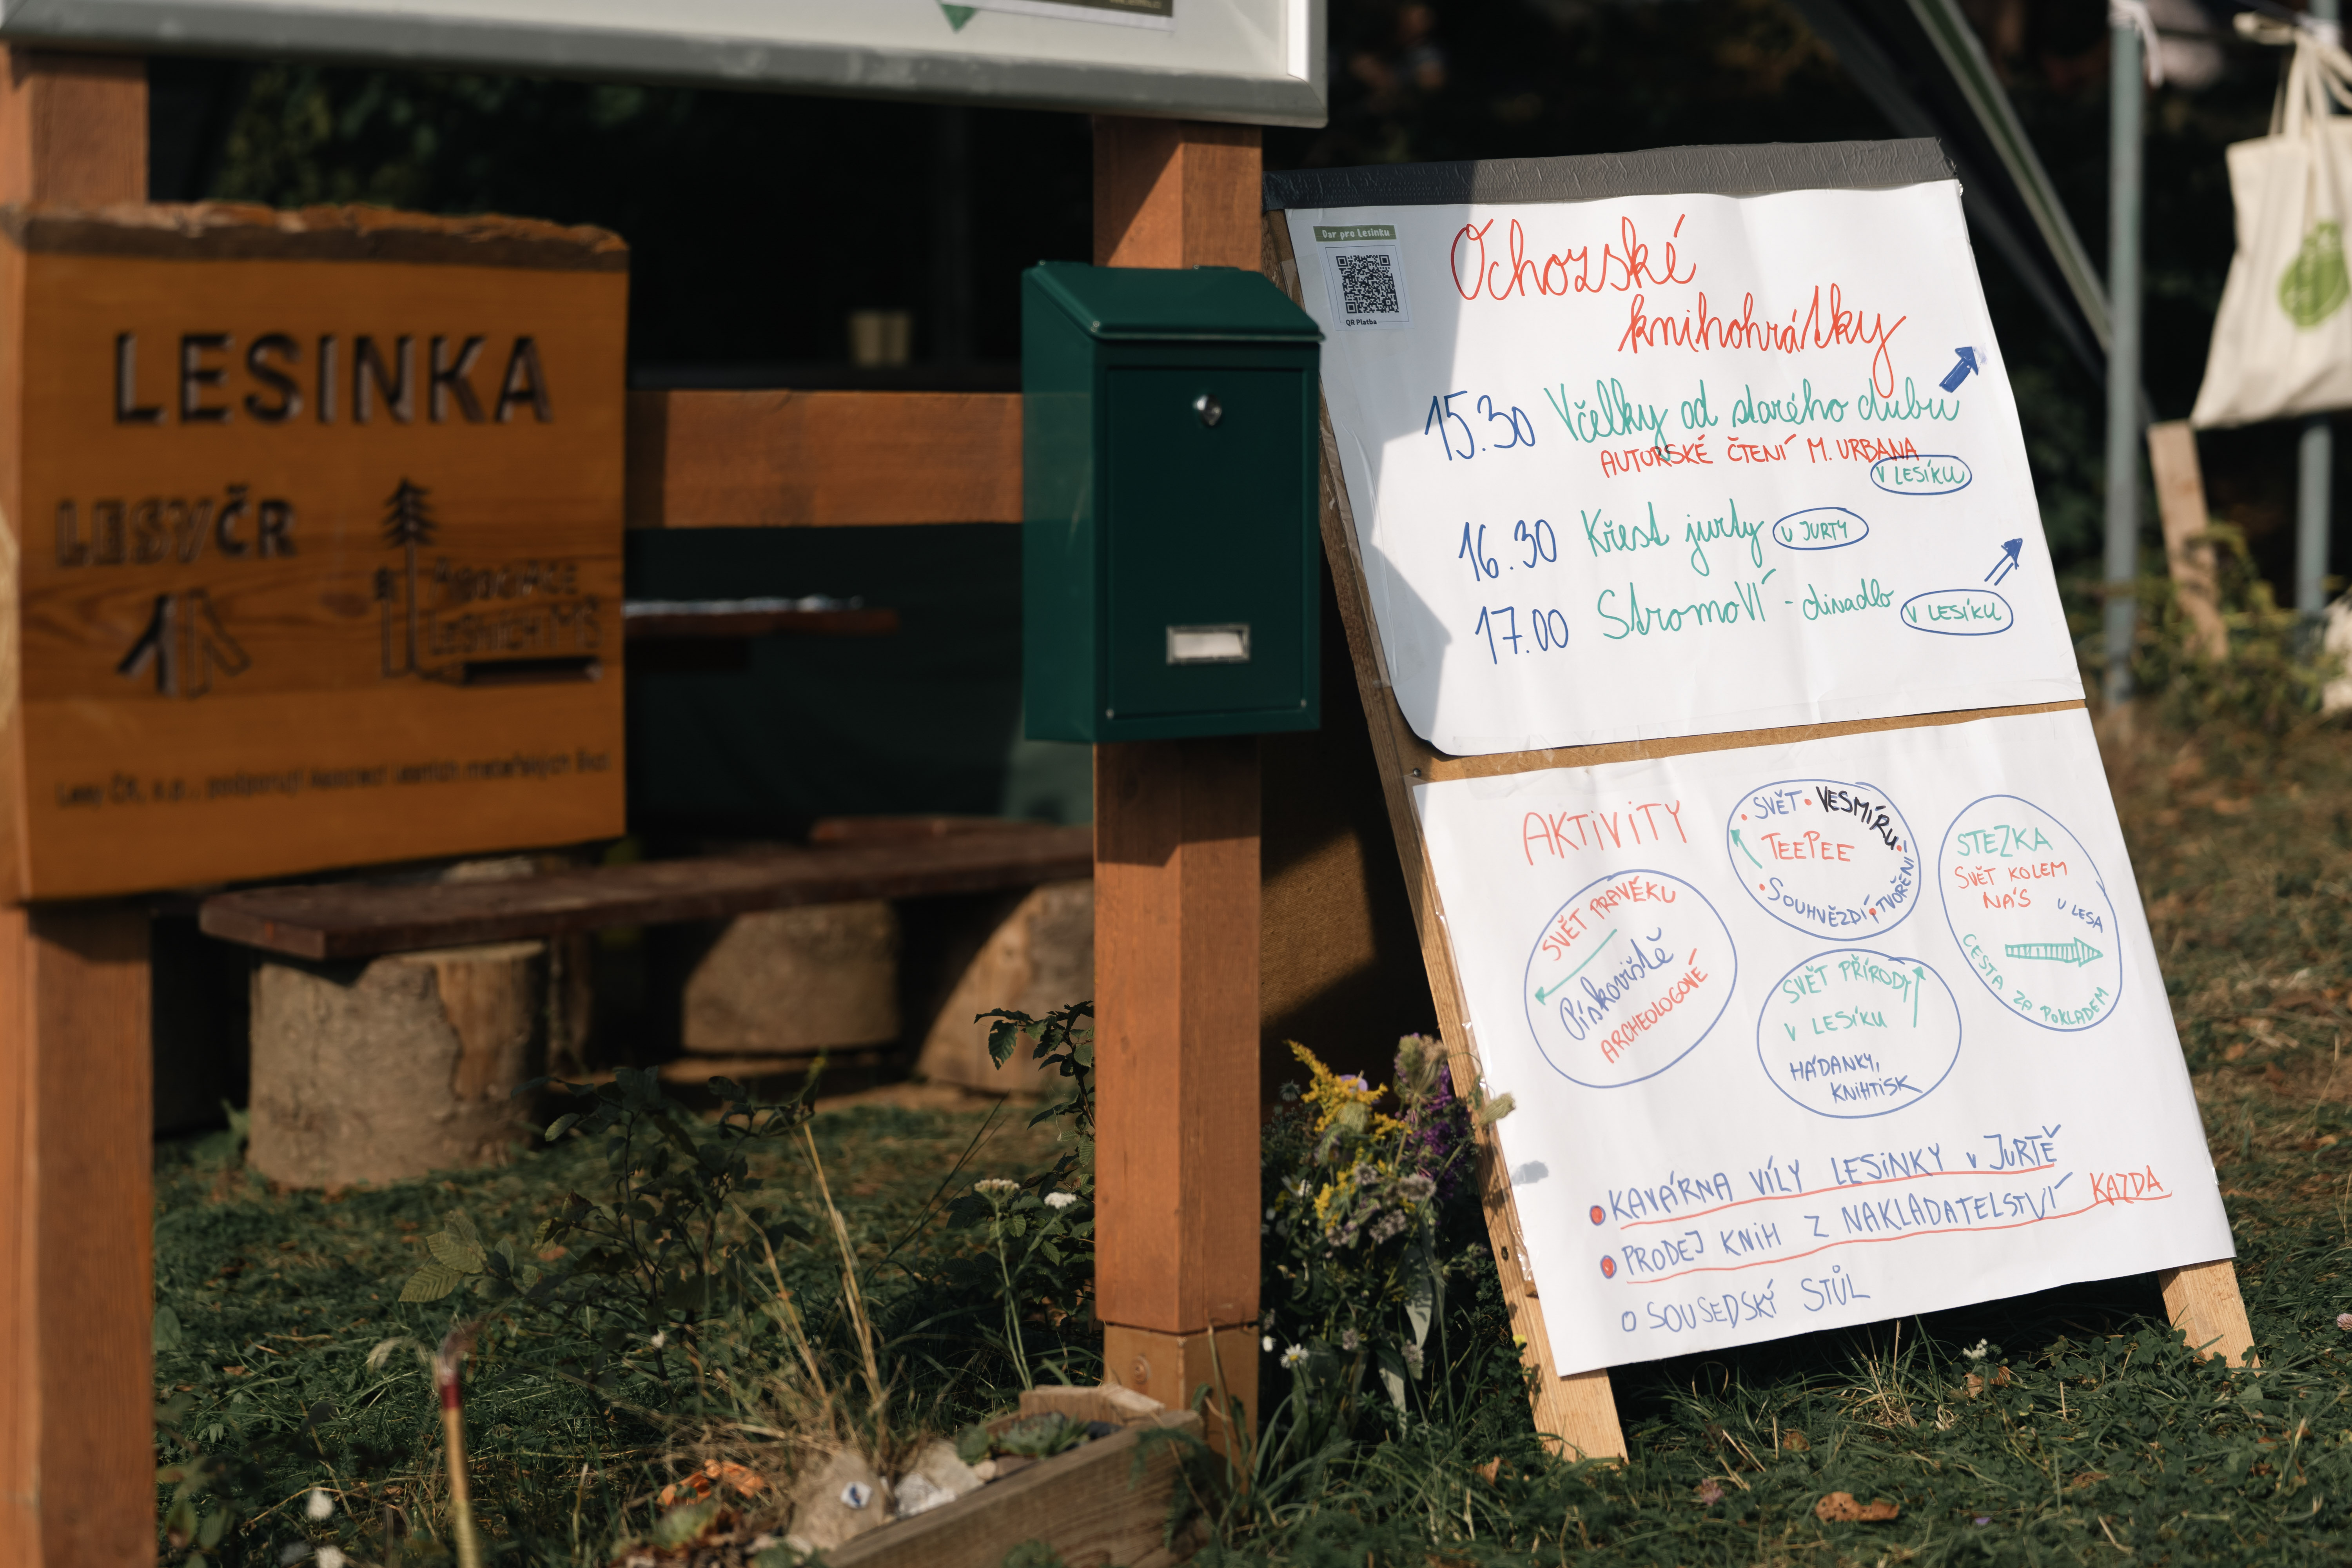 LESINKA
LESY ČR
ASOCIACE
LESNÍCH MŠ
Lesy ČR, s.p., podporují Asociaci lesních mateřských škol
Dar pro Lesinku
QR Platba
Ochozské
knihohrátky
15.30 Včelky od starého dubu
AUTORSKÉ ČTENÍ M. URBANA
V LESÍKU
16.30 Křest jurty U JURTY
17.00 StromoVÍ - divadlo V LESÍKU
AKTIVITY
SVĚT PRAVĚKU
Pískoviště
ARCHEOLOGOVÉ
SVĚT VESMÍRU
TEEPEE
SOUHVĚZDÍ TVOŘENÍ
SVĚT PŘÍRODY
V LESÍKU
HÁDANKY,
KNIHTISK
STEZKA
SVĚT KOLEM
NÁS
U LESA
CESTA ZA POKLADEM
KAVÁRNA VÍLY LESINKY v JURTĚ
PRODEJ KNIH Z NAKLADATELSTVÍ KAZDA
SOUSEDSKÝ STŮL